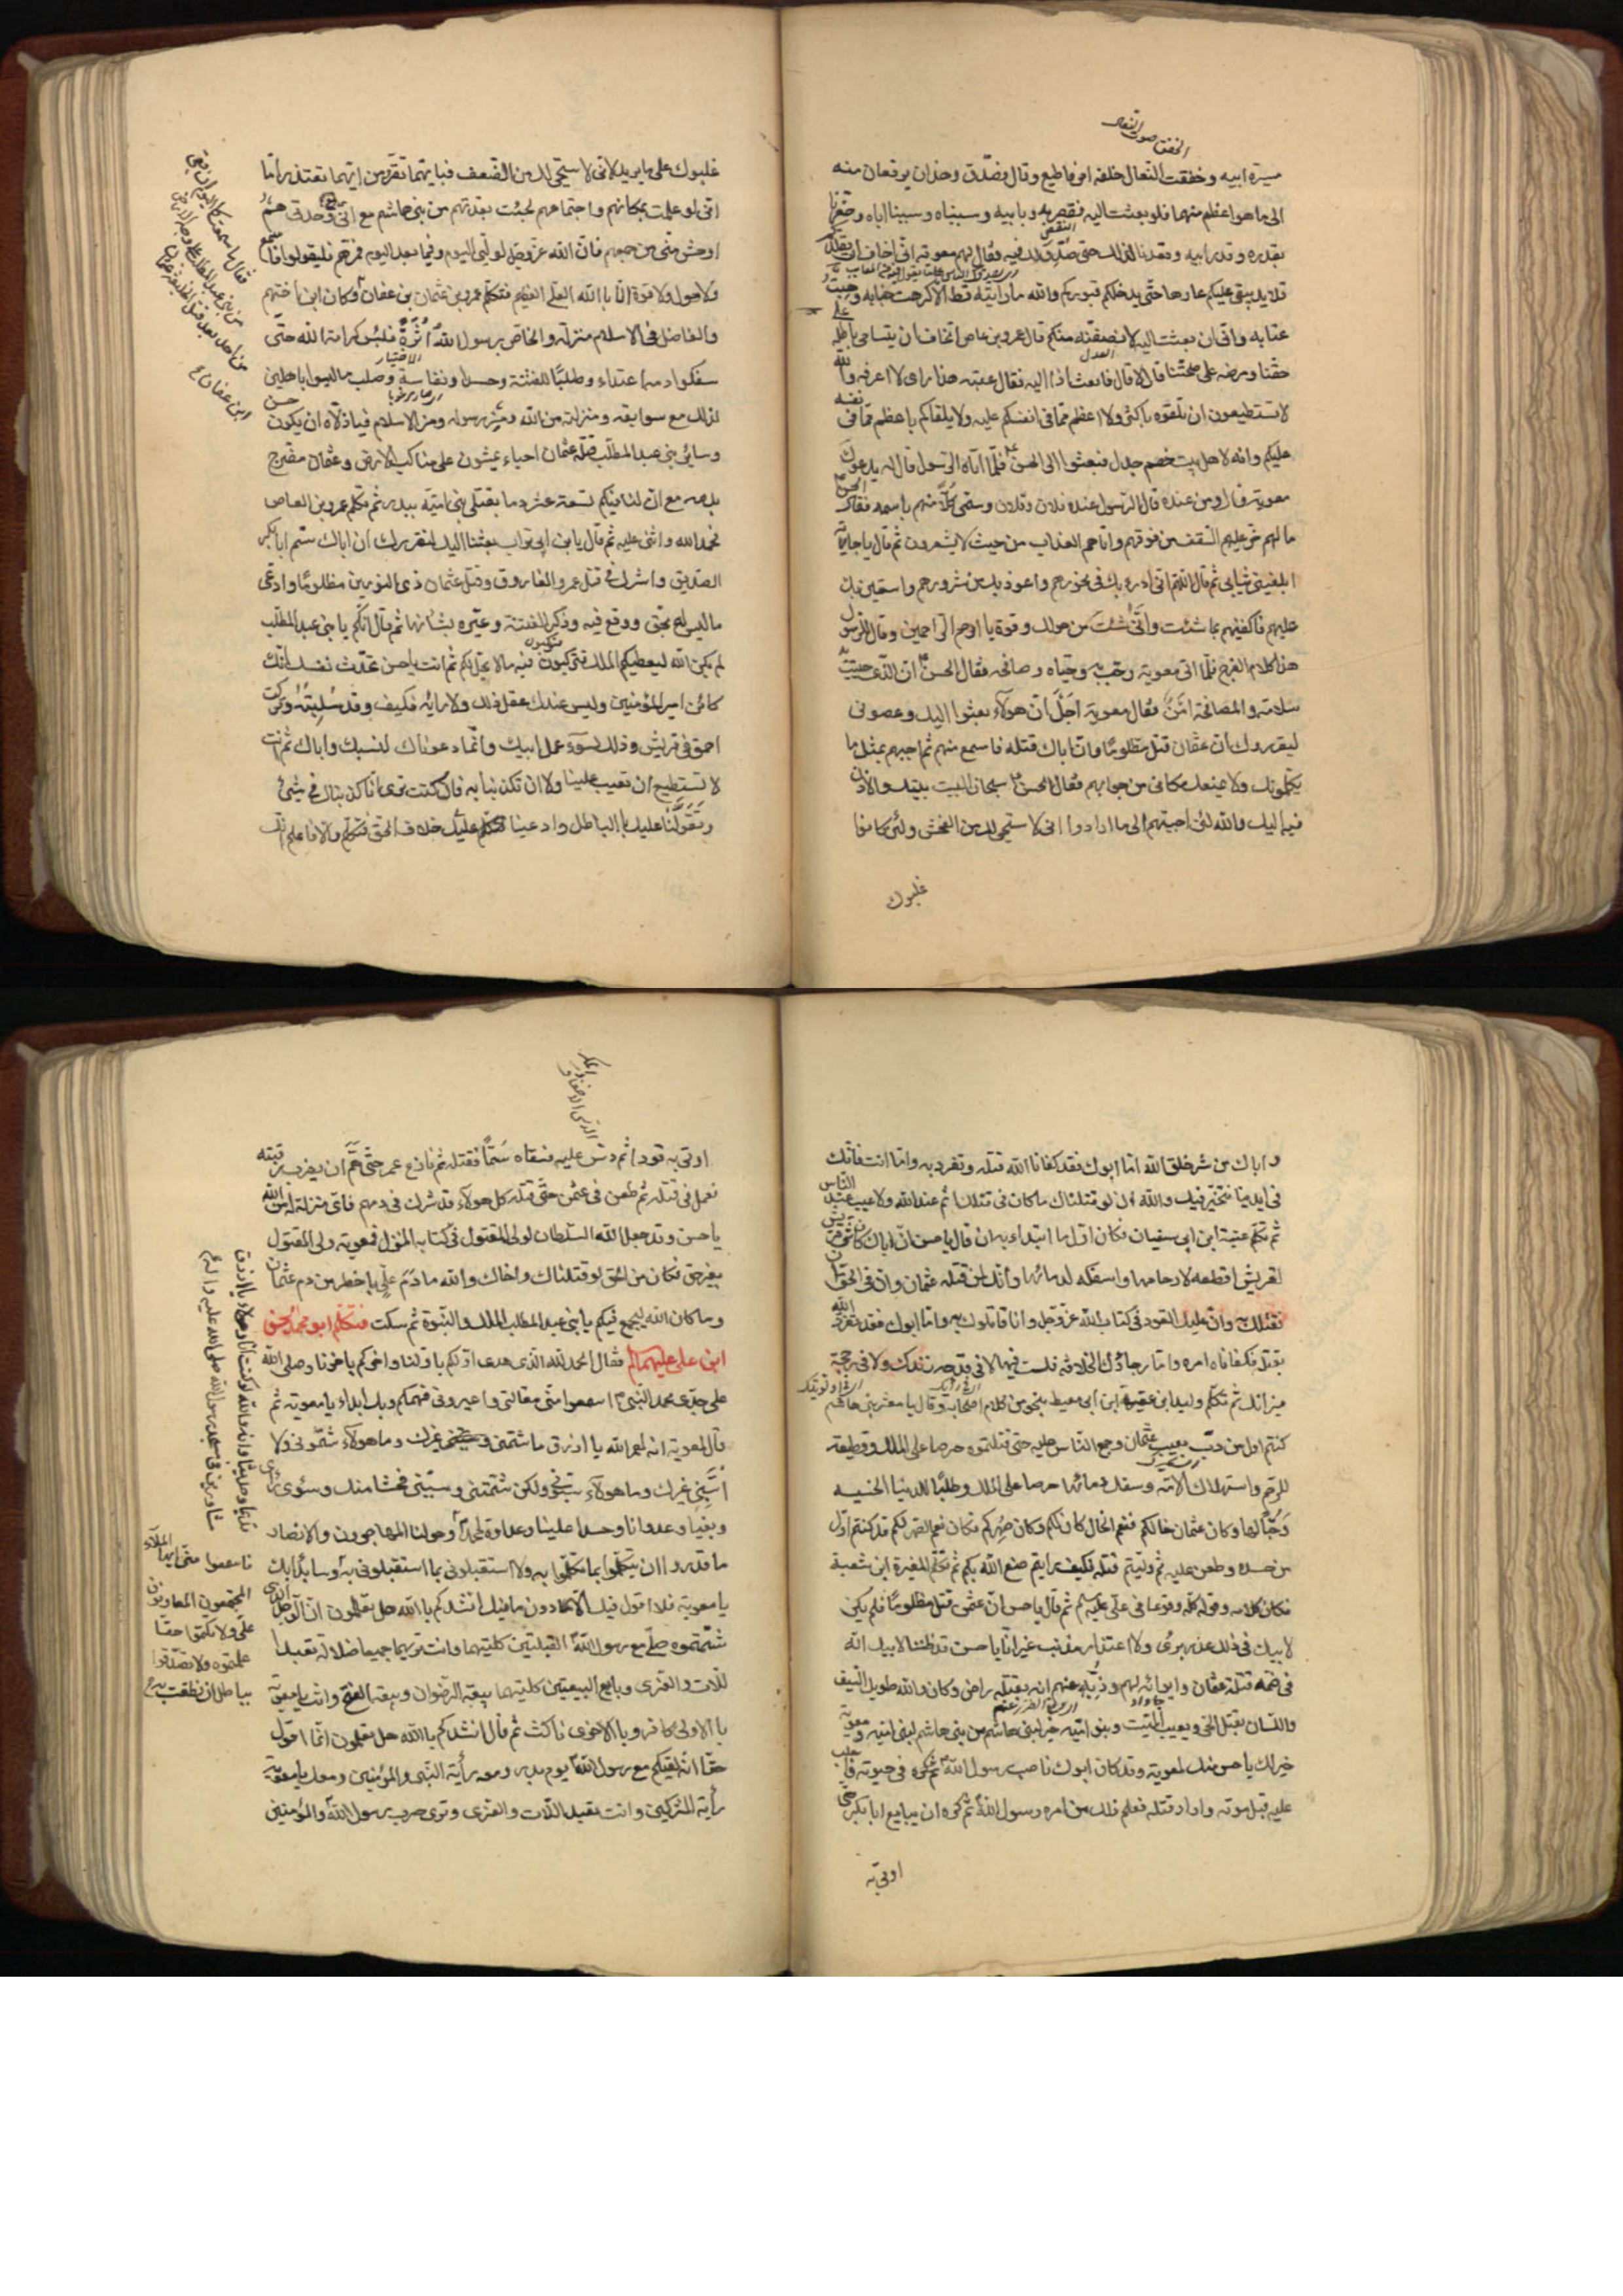 الخفق صوت النعال
سيرة ابيه وخفقت النعال خلفه امر فاطيع وقال فصدق وهذان يرفعان منه
الى ما هو اعظم منهما فلو بعثت اليه فقصرنا به وبابيه وسببناه وسببنا اباه وصغرنا
بقدره وقدر ابيه وقعدنا لذلك حتى صدق لك فيه فقال لهم معوية انى اخاف ان يقلدكم
قلايد يبقى عليكم عارها حتى يدخلكم قبوركم والله ما رايته قط الا كرهت جنابه وهبت
عتابه وانى ان بعثت اليه لانصفنه منكم قال عمرو بن عاص اتخاف ان يتسامى باطله على
حقنا ومرضه على صحتنا قال لا قال فابعث اذا اليه فقال عتبة هذا راى لا اعرفه والله
لا تستطيعون ان تلقوه باكثر ولا اعظم مما فى انفسكم عليه ولا يلقاكم باعظم مما فى نفسه
عليكم وانه لاهل بيت خصم جدل فبعثوا الى الحسن فلما اتاه الرسول قال له يدعوك
معوية قال ومن عنده قال الرسول عنده فلان وفلان وسمى كلا منهم باسمه فقال الحسن
ما لهم خر عليهم السقف من فوقهم واتاهم العذاب من حيث لا يشعرون ثم قال يا جارية
ابلغينى ثيابى ثم قال اللهم انى ادرء بك فى نحورهم واعوذ بك من شرورهم واستعين بك
عليهم فاكفنيهم بما شئت وانى شئت من حولك وقوة يا ارحم الراحمين وقال للرسول
هذا كلام الفرج فلما اتى معوية رحب به وحياه وصافحه فقال الحسن ان الذى حييت به
سلامة والمصافحة امن فقال معوية اجل ان هولاء بعثوا اليك وعصونى
ليقرروك ان عثمان قتل مظلوما وان اباك قتله فاسمع منهم ثم اجبهم بمثل ما
يكلمونك ولا يمنعك مكانى من جوابهم فقال الحسن سبحان الله البيت بيتك والاذن
فيه اليك والله لئن اجبتهم الى ما ارادوا انى لاستحيى لك من الفحش ولئن كانوا
غلبوك
غلبوك على ما يريد لانى لاستحيى لك من الضعف فبايهما تقر ومن ايهما تعتذر اما
انى لو علمت بمكانهم واجتماعهم لجئت بعدتهم من بنى هاشم مع انى وحدى هم
اوحش منى من جمعهم فان الله عز وجل لوليى اليوم وفيما بعد اليوم فمرهم فليقولوا فاسمع
ولا حول ولا قوة الا بالله العلى العظيم فتكلم عمرو بن عثمان بن عفان وكان ابن اختهم
والفاضل فى الاسلام منزلة والخاص برسول الله اثرة فبئس كرامة الله حتى
سفكوا دمه اعتداء وطلبا للفتنة وحسدا ونفاسة وطلب ما ليسوا باهلين
لذلك مع سوابقه ومنزلته من الله ومن رسوله ومن الاسلام فيا ذلاه ان يكون حسن
وسائر بنى عبد المطلب قتلة عثمان احياء يمشون على مناكب الارض وعثمان مضرج
بدمه مع ان لنا فيكم تسعة عشر دما بقتلى بنى امية ببدر ثم تكلم عمرو بن العاص
فحمد الله واثنى عليه ثم قال يا بن ابى تراب بعثنا اليك لنقررك ان اباك سم ابا بكر
الصديق واشرك فى قتل عمر الفاروق وقتل عثمان ذى النورين مظلوما وادعى
ما ليس له بحق ووقع فيه وذكر الفتنة وعيره بشانها ثم قال انكم يا بنى عبد المطلب
لم يكن الله ليعطيكم الملك فتركبون فيه ما لا يحل لكم ثم انت يا حسن تحدث نفسك انك
كائن امير المؤمنين وليس عندك عقل ذلك ولا رايه فكيف وقد سلبته وتركت
احمق فى قريش وذلك لسوء عمل ابيك وانما دعوناك لنسبك واباك ثم انت
لا تستطيع ان تعيب علينا ولا ان تكذبنا به فان كنت ترى انا كذبناك فى شئ
وتقولنا عليك بالباطل وادعينا عليك خلاف الحق فتكلم والا فاعلم انك
واباك من شر خلق الله اما ابوك فقد كفانا الله قتله وتفرد به واما انت فانك
فى ايدينا نتخير فيك والله ان لو قتلناك ما كان فى قتلك اثم عند الله ولا عيب عند الناس
ثم تكلم عتبة ابن ابى سفيان فكان اول ما ابتداء به ان قال يا حسن ان اباك كان شر قريش
لقريش اقطعه لارحامها واسفكه لدمائها وانك لمن قتلة عثمان وان فى الحق ان
نقتلك به وان عليك القود فى كتاب الله عز وجل وانا قاتلوك به واما ابوك فقد تفرد الله
بقتله فكفاناه امره واما رجاؤك الخلافة فلست فيها لا فى قدحة زندك ولا فى رجحة
ميزانك ثم تكلم وليد ابن عقبة ابن ابى معيط بنحو من كلام اصحابه وقال يا معشر بنى هاشم
كنتم اول من دب بعيب عثمان وجمع الناس عليه حتى قتلتموه حرصا على الملك وقطيعة
للرحم واستهلاك الامة وسفك دمائها حرصا على الملك وطلبا للدنيا الخبيثة
وحبا لها وكان عثمان خالكم فنعم الخال كان لكم وكان صهركم فكان نعم الصهر لكم قد كنتم اول
من حسده وطعن عليه ثم وليتم قتله فكيف رايتم صنع الله بكم ثم تكلم المغيرة ابن شعبة
فكان كلامه وقوله كله وقوعا فى على عليه السلام ثم قال يا حسن ان عثمان قتل مظلوما فلم يكن
لابيك فى ذلك عذر برئ ولا اعتذار مذنب غير انا يا حسن قد ظننا لابيك
فى ضمه قتلة عثمان وايوائه لهم وذبه عنهم انه بقتله راض وكان والله طويل السيف
واللسان يقتل الحى ويعيب الميت وبنو امية خير لبنى هاشم من بنى هاشم لبنى امية ومعوية
خير لك يا حسن منك لمعوية وقد كان ابوك ناصب رسول الله فى حيوته واجلب
عليه قبل موته واراد قتله فعلم ذلك من امره رسول الله ثم كره ان يبايع ابا بكر حتى
اوتى به
اوتى به قودا ثم دس عليه فسقاه سما فقتله ثم نازع عمر حتى هم ان يضرب رقبته
فعمل فى قتله ثم طعن فى عثمن حتى قتله كل هولاء قد شرك فى دمهم فاى منزلة له من الله
يا حسن وقد جعل الله السلطان لولى المقتول فى كتابه المنزل فمعوية ولى المقتول
بغير حق فكان من الحق لو قتلناك واخاك والله ما دم على باخطر من دم عثمان
وما كان الله ليجمع فيكم يا بنى عبد المطلب الملك والنبوة ثم سكت فتكلم ابو محمد الحسن
ابن على عليهما السلام فقال الحمد لله الذى هدى اولكم باولنا واخركم باخرنا وصلى الله
على جدى محمد النبى اسمعوا منى مقالتى واعيرونى فهمكم وبك ابداء يا معوية ثم
قال لمعوية انه لعمر الله يا ازرق ما شتمنى غيرك وما هولاء شتمونى ولا
سبنى غيرك وما هولاء سبونى ولكن شتمتنى وسببتنى فحشا منك وسوء راى
وبغيا وعدوانا وحسدا علينا وعداوة لمحمد وحولنا المهاجرون والانصار
ما قدروا ان يتكلموا بما تكلموا به ولا استقبلونى بما استقبلونى به وسابدء بك
يا معوية فلا اقول فيك الا ما دون ما فيك انشدكم بالله هل تعلمون ان الرجل الذى
شتمتموه صلى مع رسول الله القبلتين كلتيهما وانت تريهما جميعا ضلالة تعبد
اللات والعزى وبايع البيعتين كلتيهما بيعة الرضوان وبيعة الفتح وانت يا معوية
بالاولى كافر وبالاخرى ناكث ثم قال انشدكم بالله هل تعلمون انما اقول
حقا انه لقيكم مع رسول الله يوم بدر ومعه راية النبى والمؤمنين ومعك يا معوية
راية المشركين وانت تعبد اللات والعزى وترى حرب رسول الله والمؤمنين
فاسمعوا منى ايها الملاء
المجتمعون المعاونون
على ولا تكتموا حقا
علمتموه ولا تصدقوا
بباطل ان نطقت به